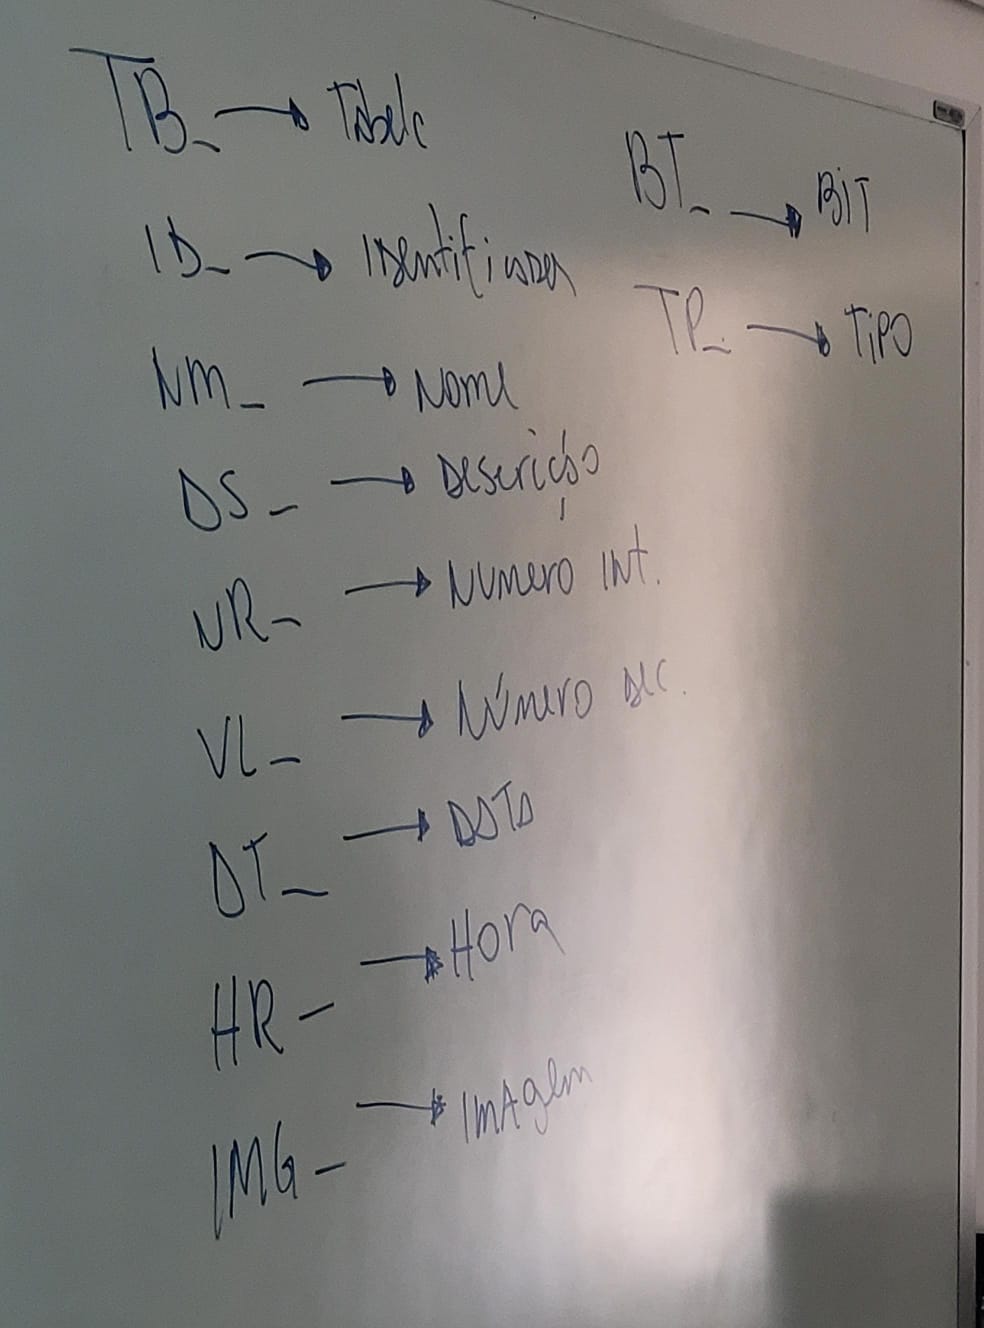 TB_ → Tabela
ID_ → Identificador
NM_ → Nome
DS_ → Descrição
NR_ → Numero Int.
VL_ → Número Dec.
DT_ → Data
HR_ → Hora
IMG_ → Imagem
BT_ → BIT
TP_ → TIPO